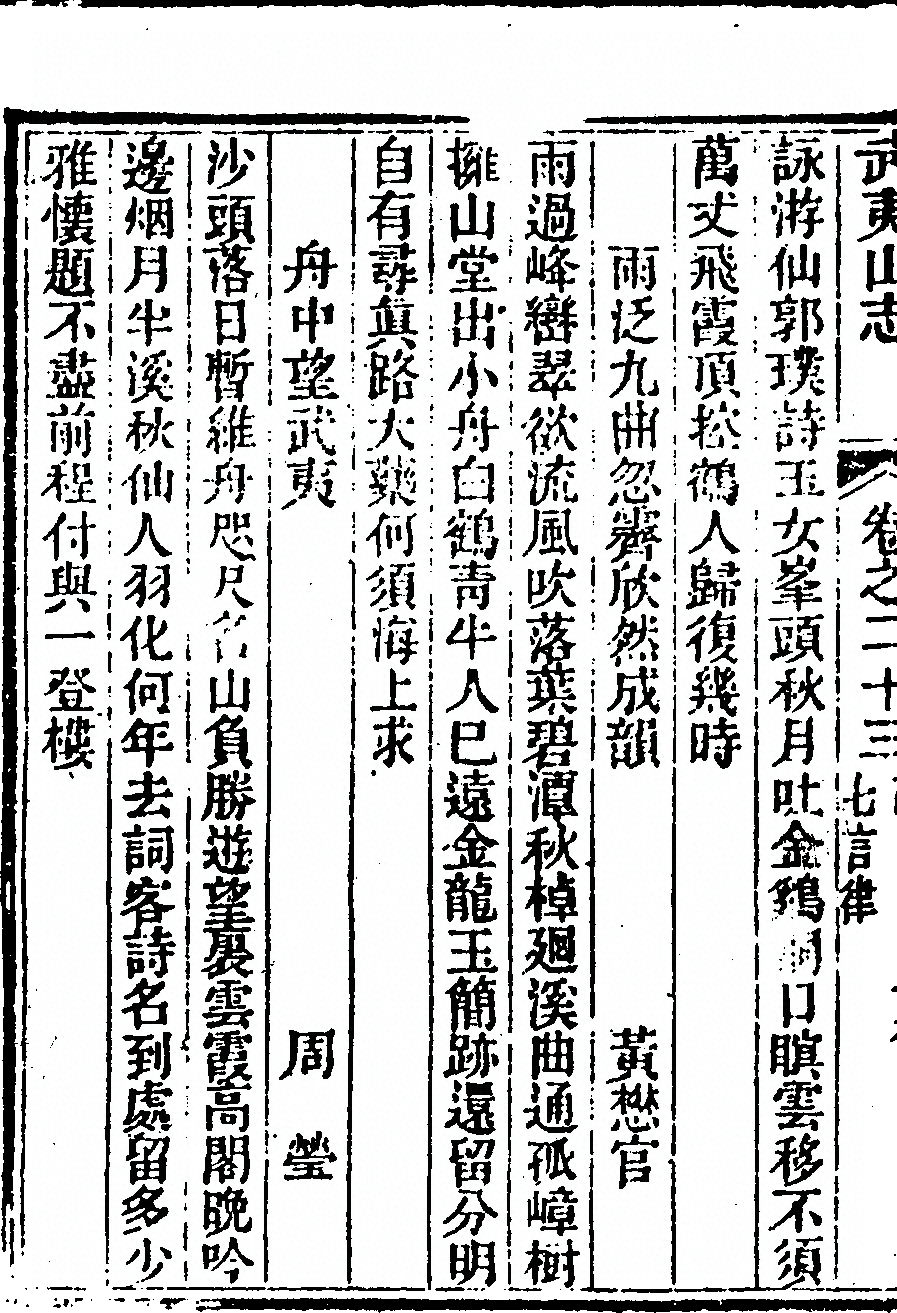 武夷山志 卷之二十三 七言律
詠游仙郭璞詩玉女峯頭秋月吐金鷄洞口暝雲移不須
萬丈飛霞頂松鶴人歸復幾時
雨泛九曲忽霽欣然成韻 黃懋官
雨過峰巒翠欲流風吹落葉碧潭秋棹廻溪曲通孤嶂樹
擁山堂出小舟白鶴靑牛人已遠金龍玉簡跡還留分明
自有尋眞路大藥何須海上求
舟中望武夷 周瑩
沙頭落日暫維舟咫尺名山負勝遊望裏雲霞高閣晚吟
邊烟月半溪秋仙人羽化何年去詞客詩名到處留多少
雅懷題不盡前程付與一登樓